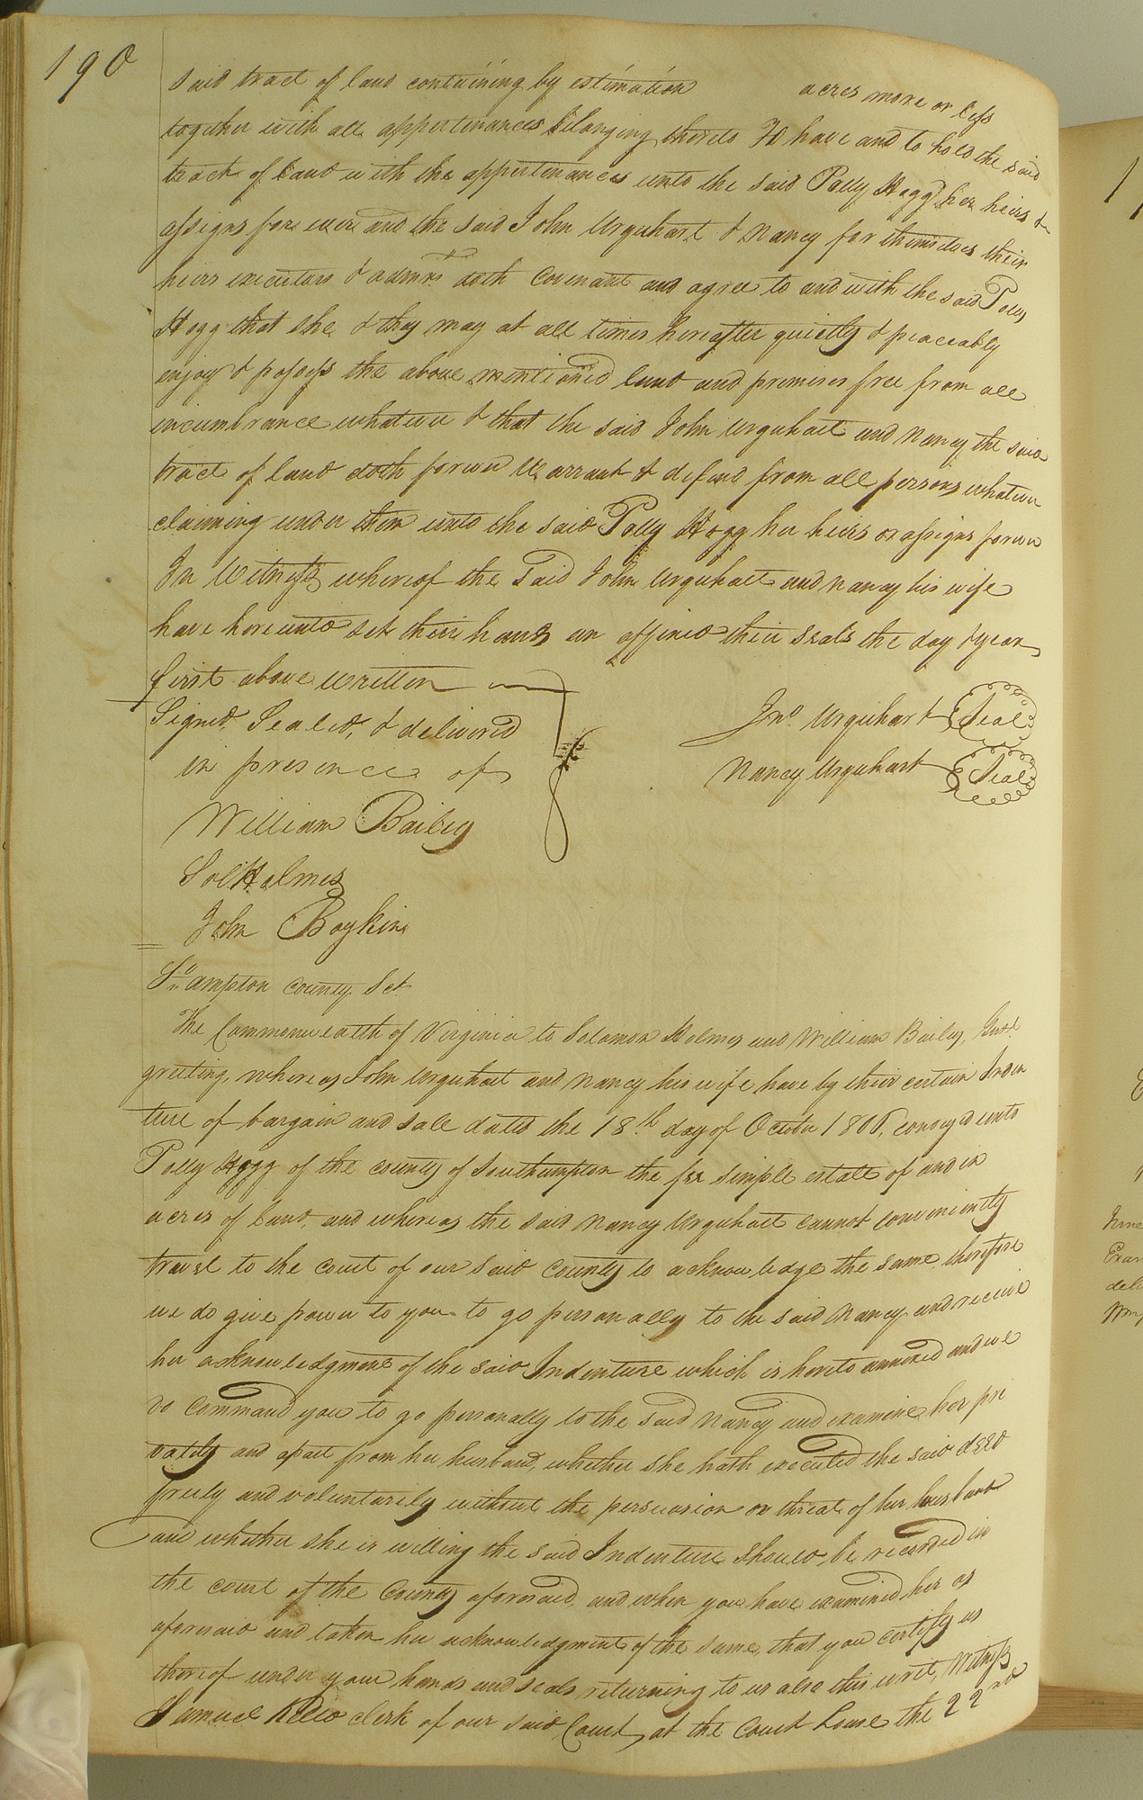 190
said tract of land containing by estimation acres more or less
together with all appertenances belonging thereto To have and to hold the said
tract of land with the appertenances unto the said Polly Hogg her heirs &
assigns for ever and the said John Urquhart & Nancy for themselves their
heirs executors & admrs doth Covenant and agree to and with the said Polly
Hogg that she & they may at all times hereafter quietly & peaceably
enjoy & possess the above mentioned land and premises free from all
incumbrance whatever & that the said John Urquhart and Nancy the said
tract of land doth forever Warrant & defend from all persons whatever
claiming under them unto the said Polly Hogg her heirs or assigns forever
In Witness whereof the said John Urquhart and Nancy his wife
have hereunto set their hands an affixed their seals the day & year
first above written
Signed, Sealed, & delivered
in presence of
Jno. Urquhart Seal
Nancy Urquhart Seal
William Bailey
Sol Holmes
John Boykin
So.ampton County Sct
The Commonwealth of Virginia to Solomon Holmes and William Bailey, Gent
greeting, whereas John Urquhart and Nancy his wife have by their certain Inden
ture of bargain and sale dated the 18th day of October 1806, conveyed unto
Polly Hogg of the county of Southampton the fee simple estate of and in
acres of land, and whereas the said Nancy Urquhart cannot conveniently
travel to the court of our said County to acknowledge the same therefore
we do give power to you to go personally to the said Nancy and receive
her acknowledgment of the said Indenture which is hereto annexed and we
do command you to go personally to the said Nancy and examine her pri
vately and apart from her husband, whether she hath executed the said deed
freely and voluntarily without the persuasion or threat of her husband
and whether she is willing the said Indenture should be recorded in
the court of the County aforesaid, and when you have examined her as
aforesaid and taken her acknowledgment of the same, that you certify us
thereof under your hands and seals returning to us also this writ, Witness
Samuel Kello clerk of our said Court, at the Court house the 22nd